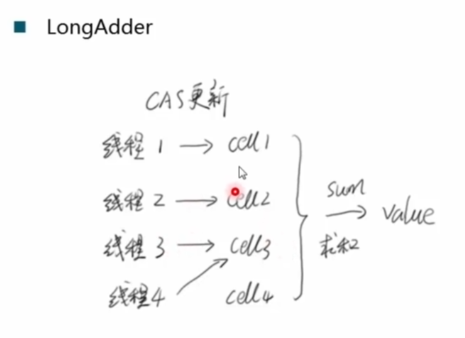 LongAdder
CAS更新
线程 1 → cell1
线程 2 → cell2
线程 3 → cell3
线程4 cell4
sum → value
求和